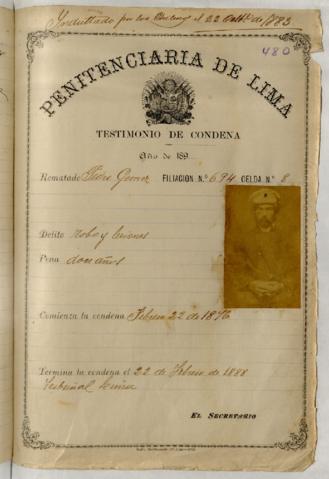 Indultado por los Chilenos el 22 Octbe. de 1883
480
PENITENCIARIA DE LIMA
TESTIMONIO DE CONDENA
Año de 189
Rematado Pedro Gomez FILIACION N.º 694 CELDA N.º 8
Delito Robo y
Pena doce años
Comienza la condena Febrero 22 de 1876
Termina la condena el 22 de Febrero de 1888
Tribunal
EL SECRETARIO